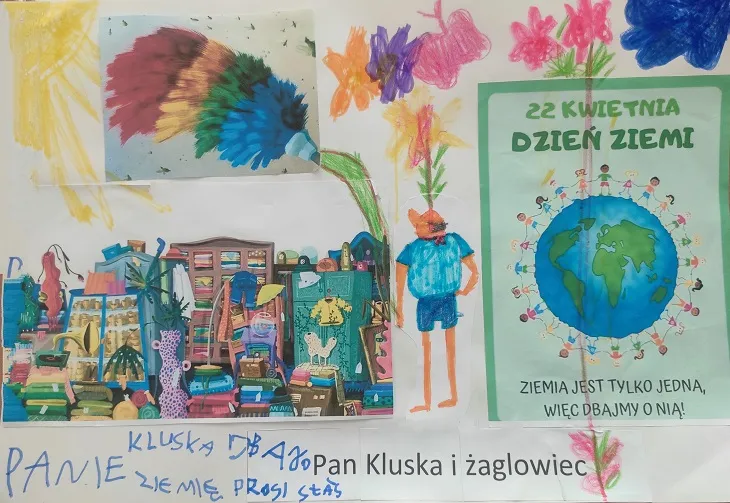 22 KWIETNIA
DZIEŃ ZIEMI
ZIEMIA JEST TYLKO JEDNA,
WIĘC DBAJMY O NIĄ!
PANIE KLUSKA DBAJ O
ZIEMIĘ PROSI STAŚ
Pan Kluska i żaglowiec